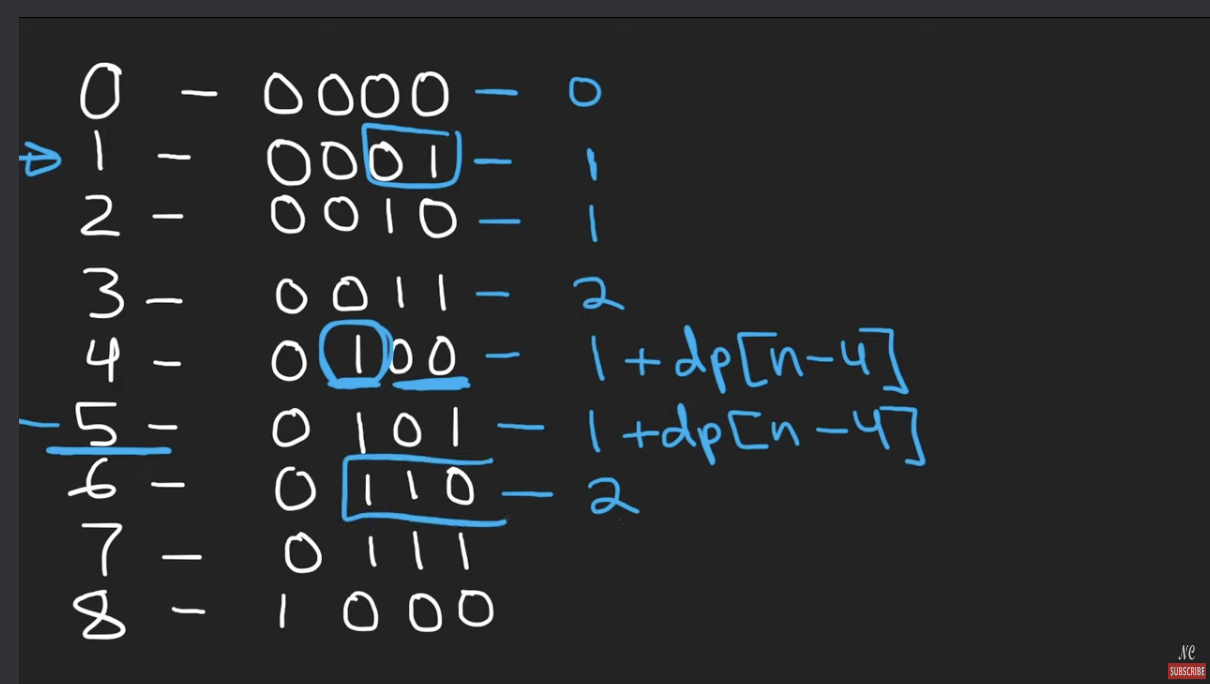 0 - 0000 - 0
1 - 0001 - 1
2 - 0010 - 1
3 - 0011 - 2
4 - 0100 - 1 + dp[n-4]
5 - 0101 - 1 + dp[n-4]
6 - 0110 - 2
7 - 0111
8 - 1000
NC
SUBSCRIBE